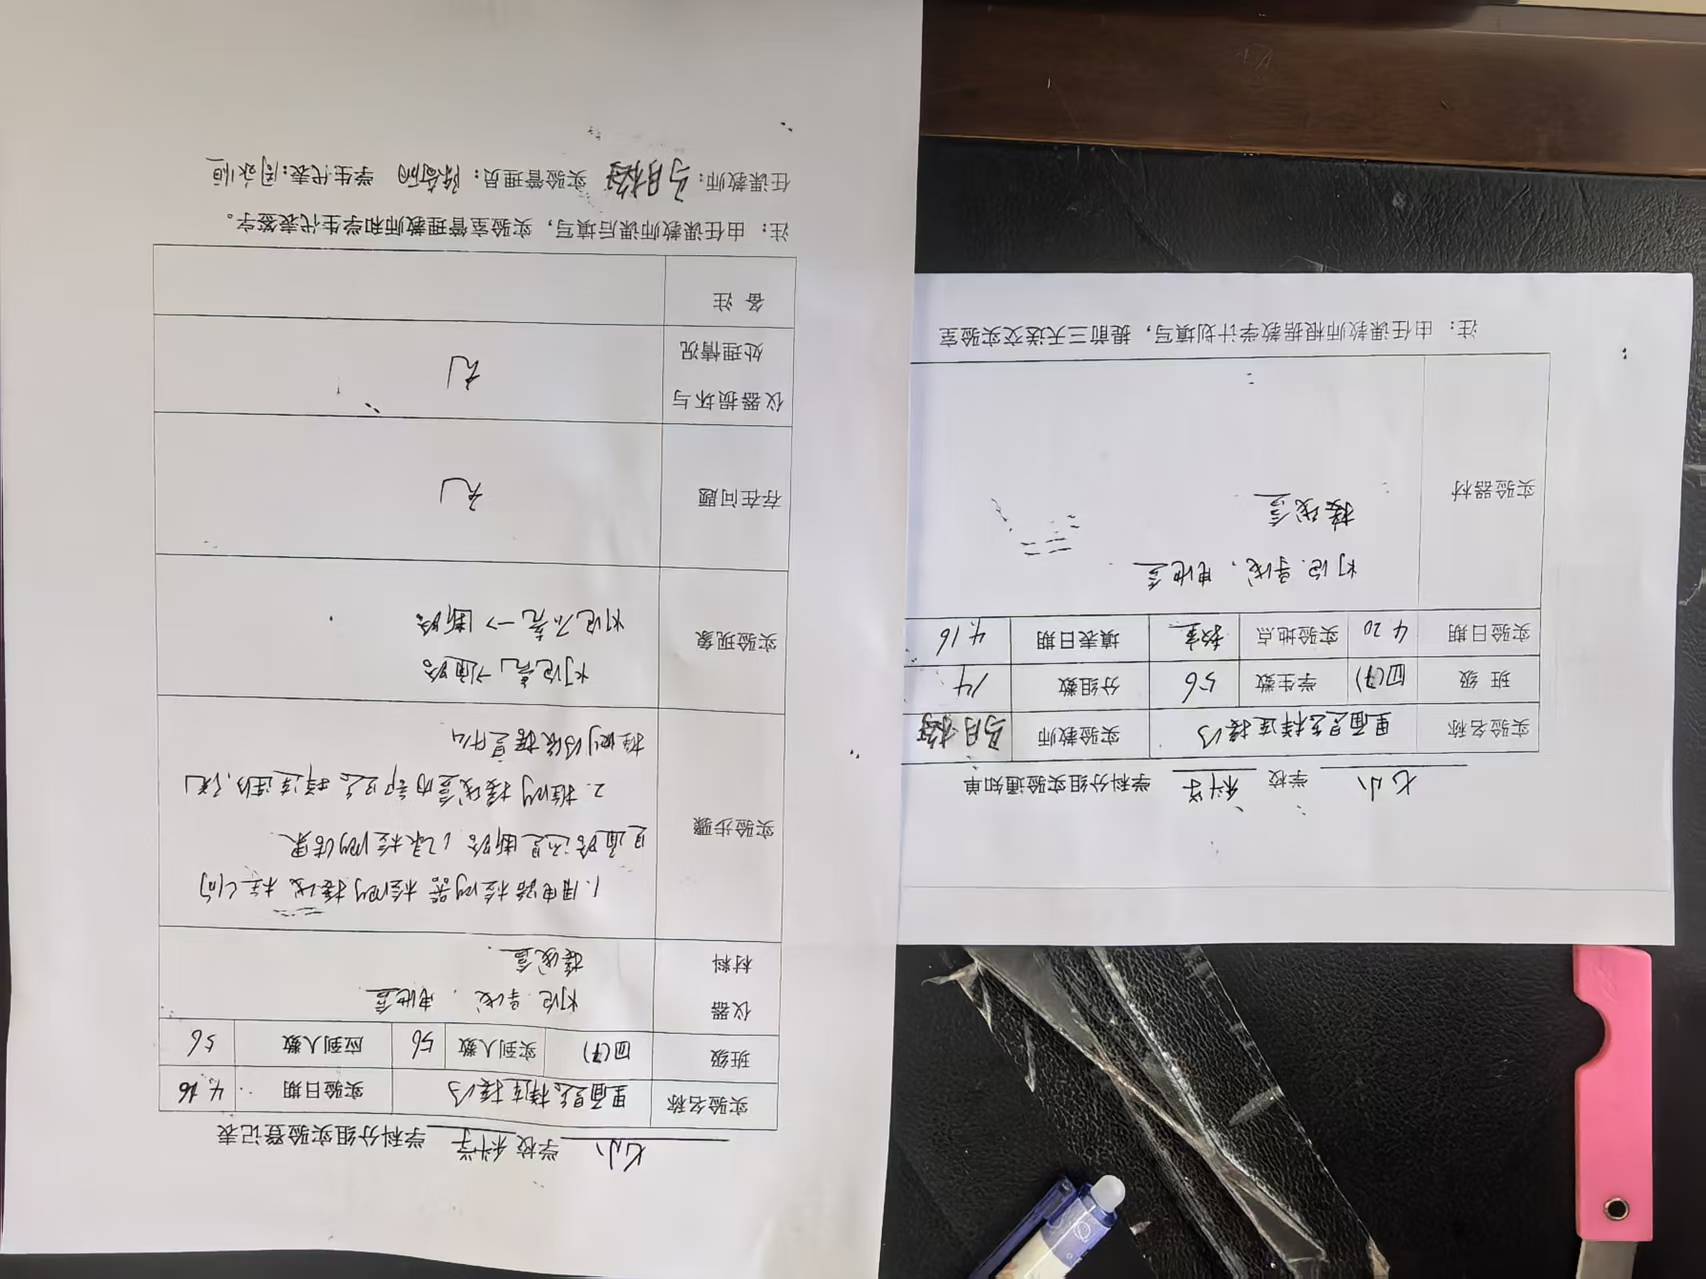 七小 学校 科学 学科分组实验登记表
实验名称 里面是怎样连接的 实验日期 4.16
班级 四(7) 实到人数 56 应到人数 56
仪器 灯泡.导线、电池盒
材料 接线盒.
实验步骤
1.用电路检测器检测接线柱之间
是通路还是断路,记录检测结果.
2.推测接线盒内部是怎样连的,
推测的依据是什么
实验现象
灯泡亮→通路
灯泡不亮→断路
存在问题 无
仪器损坏与
处理情况 无
备 注
注:由任课教师课后填写,实验室管理教师和学生代表签字。
任课教师: 实验管理员: 学生代表:
七小 学校 科学 学科分组实验通知单
实验名称 里面是怎样连接的 实验教师
班 级 四(7) 学生数 56 分组数 14
实验日期 4 20 实验地点 教室 填表日期 4.16
实验器材
灯泡.导线、电池盒
接线盒
注:由任课教师根据教学计划填写,提前三天送交实验室